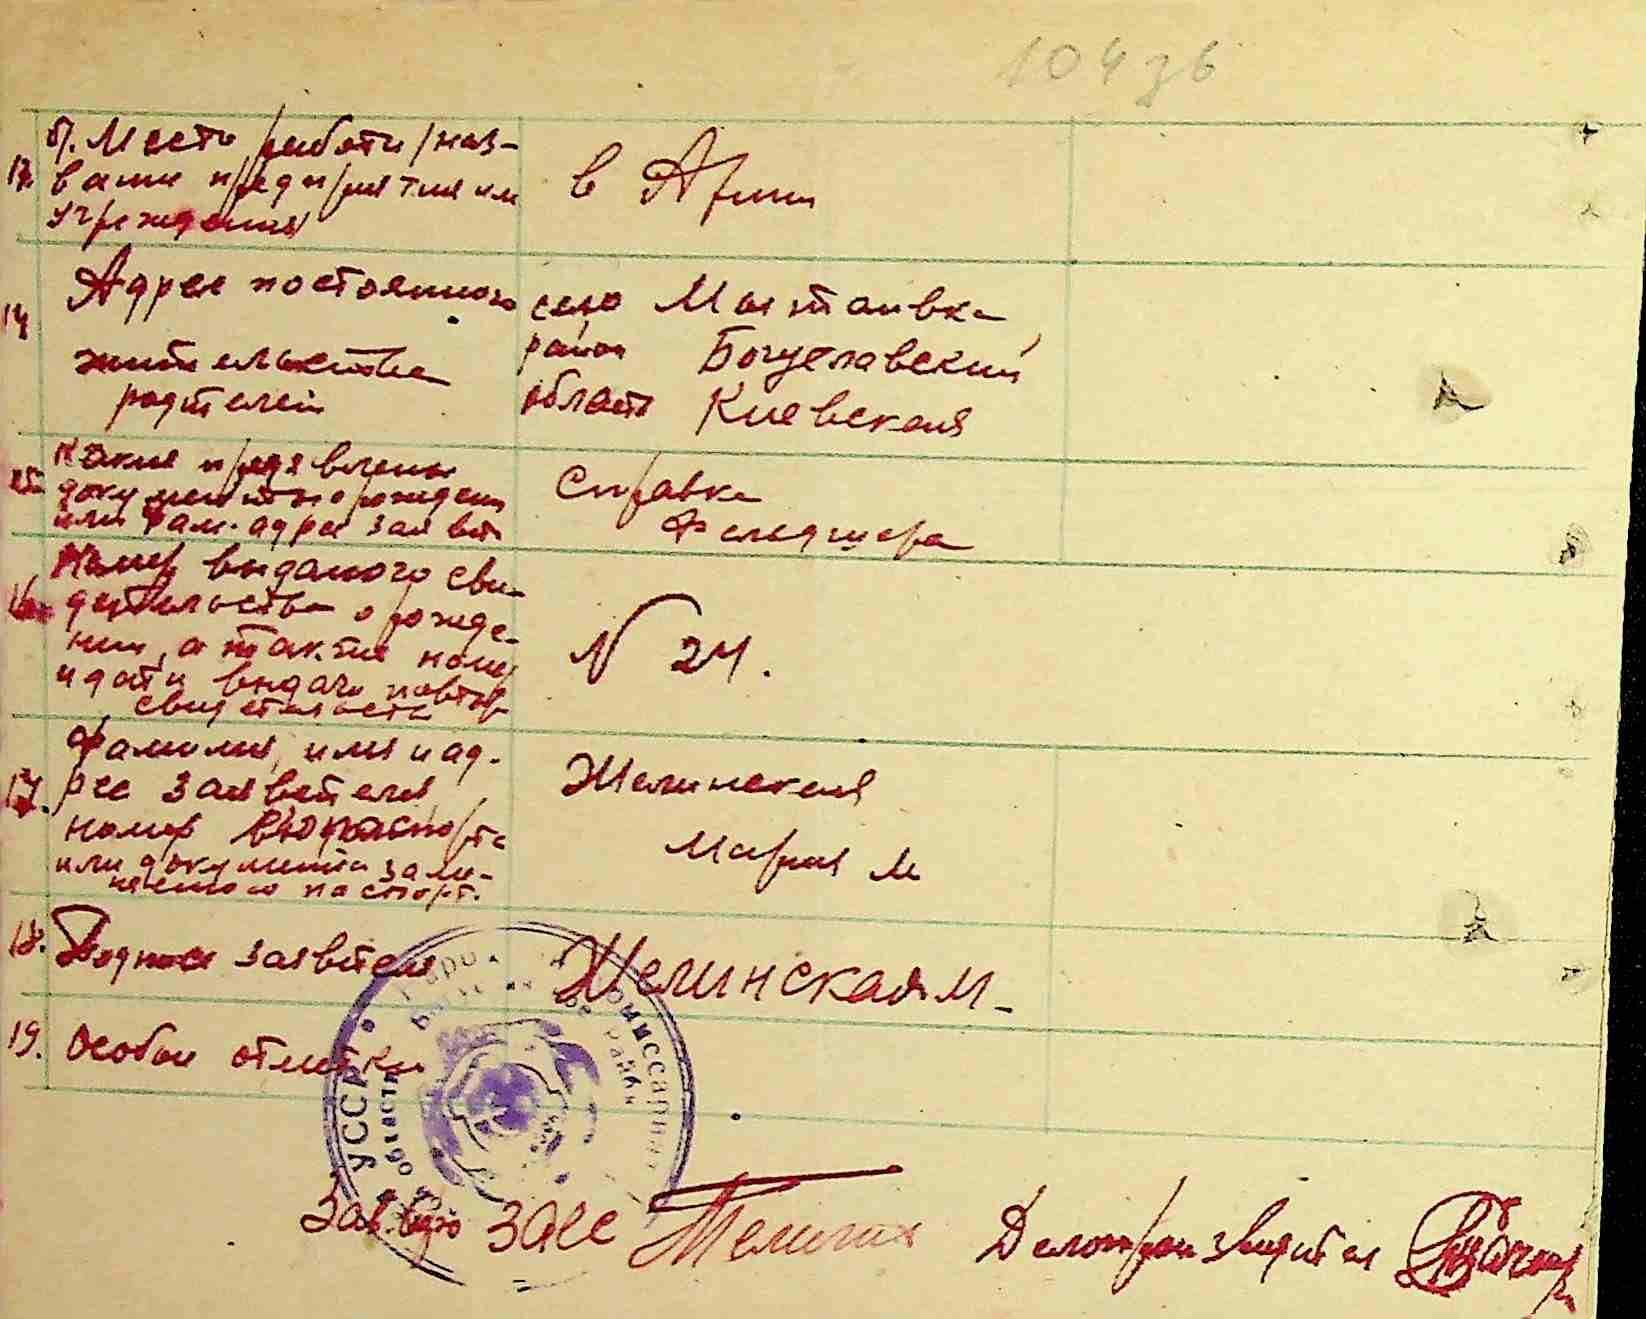 104 зв
13. б). Место работы /наз-
вание предприятия или
учреждения/
в Армии
14 Адрес постоянного
жительства
родителей
село Мыстаивка
район Богуславский
область Киевская
15 Какие предявлены
документы о рожден
или фам. адрес заявит
Справка
Фелдшера
16. Номер выданого сви-
детельства о рожде-
нии, а также номер
и дата выдачи повтор
свидетельства
N 24.
17. Фамилия, имя и ад-
рес заявителя,
номер его паспорта
или документа заме-
няющего паспорт.
Желинская
Мария М
18. Подпись заявителя
Желинская М.
19. Особые отметки
УССР
Зав. бюро ЗАГС
Делопроизводител